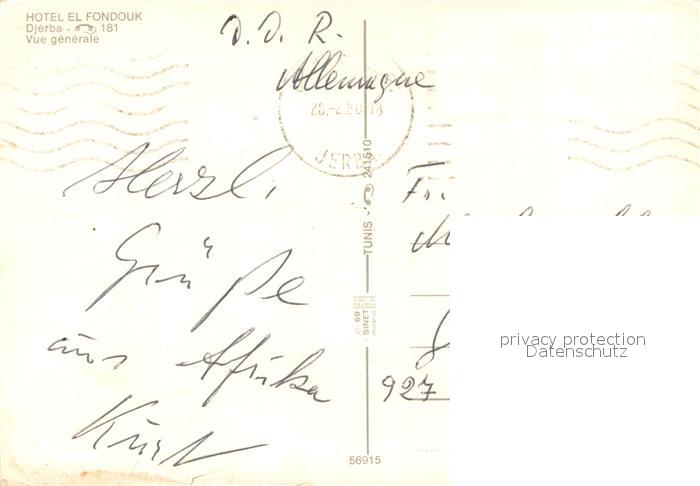 HOTEL EL FONDOUK
Djerba - 181
Vue générale
D. D. R.
Allemagne
JERBA
Herzl.
Grüße
aus Afrika
Kurt
TUNIS - 241510
SINET
Fr.
927
privacy protection
Datenschutz
56915